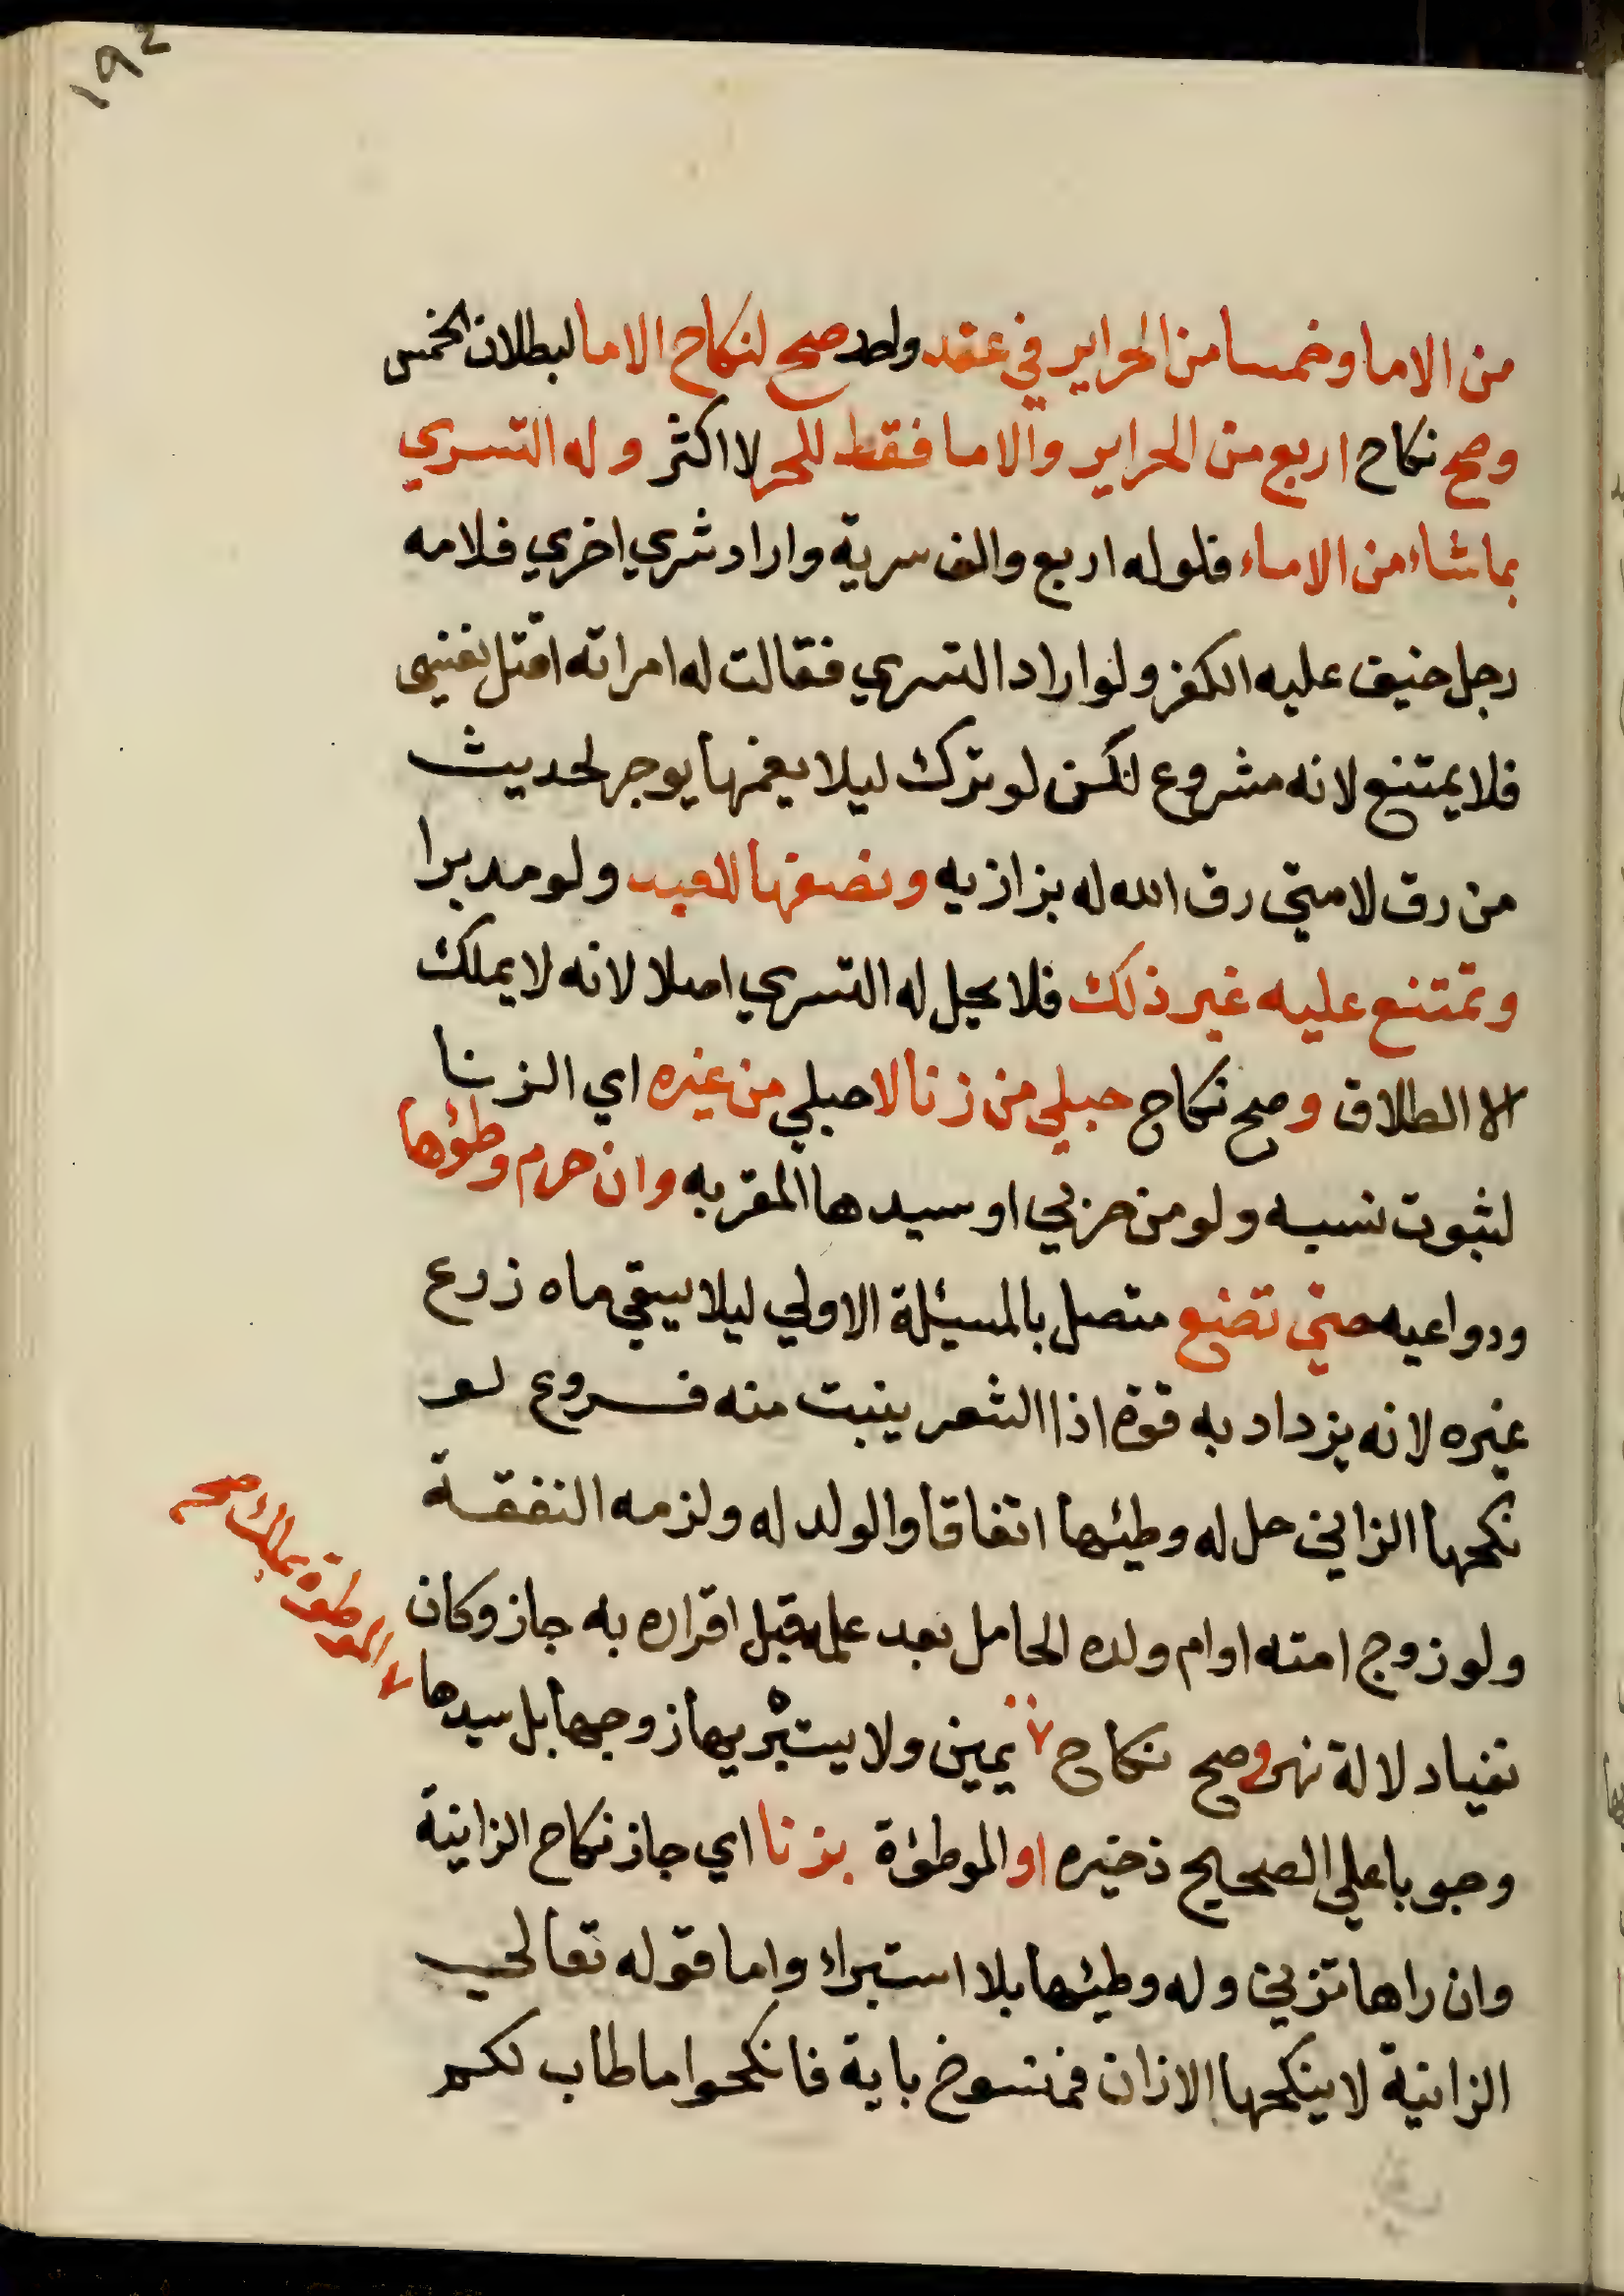 ١٩٢
من الاما وخمسا من الحراير في عقد واحد صح لنكاح الاما لبطلان الخمس
وصح نكاح اربع من الحراير والاما فقط للحر لا اكثر وله التسري
بما شاء من الاماء فلو له اربع والف سرية واراد شري اخري فلامه
رجل خيف عليه الكفر ولو اراد التسري فقالت له امراته اقتل نفسي
فلا يمتنع لانه مشروع لكن لو ترك ليلا يغمها يوجر لحديث
من رق لامتي رق الله له بزازيه ونصفها للعبد ولو مدبرا
وتمتنع عليه غير ذلك فلا يحل له التسري اصلا لانه لا يملك
الا الطلاق وصح نكاح حبلي من زنا لا حبلي من غيره اي الزنا
لثبوت نسبه ولو من حربي او سيدها المقر به وان حرم وطؤها
ودواعيه حتي تضع متصل بالمسئلة الاولي ليلا يسقي ماه زرع
غيره لانه يزداد به قوة اذا الشعر ينبت منه فروع لو
نكحها الزاني حل له وطيئها اتفاقا والولد له ولزمه النفقة
ولو زوج امته او ام ولده الحامل بعد علمه قبل اقراره به جاز وكان
نفيا دلالة نهر وصح نكاح ٧ يمين ولا يستبريها زوجها بل سيدها
٧ الموطوة بملك صح
وجوبا علي الصحيح ذخيره او الموطؤة بزنا اي جاز نكاح الزانية
وان راها تزني وله وطيئها بلا استبراء واما قوله تعالي
الزانية لا ينكحها الا زان فمنسوخ باية فانكحوا ما طاب لكم